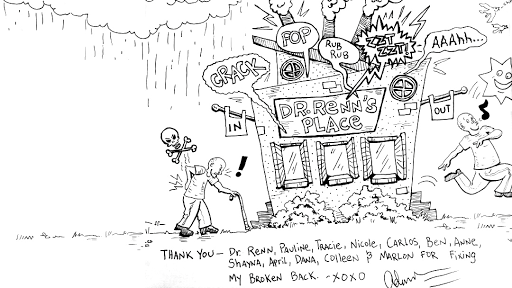 POP
RUB
RUB
ZZT
ZZT!
AAAhh...
CRACK
DR. RENN'S
PLACE
IN
OUT
!
THANK YOU — Dr. Renn, Pauline, Tracie, Nicole, Carlos, Ben, Anne,
Shayna, April, Dana, Colleen & Marlon for fixing
my broken back. -XOXO
Adam